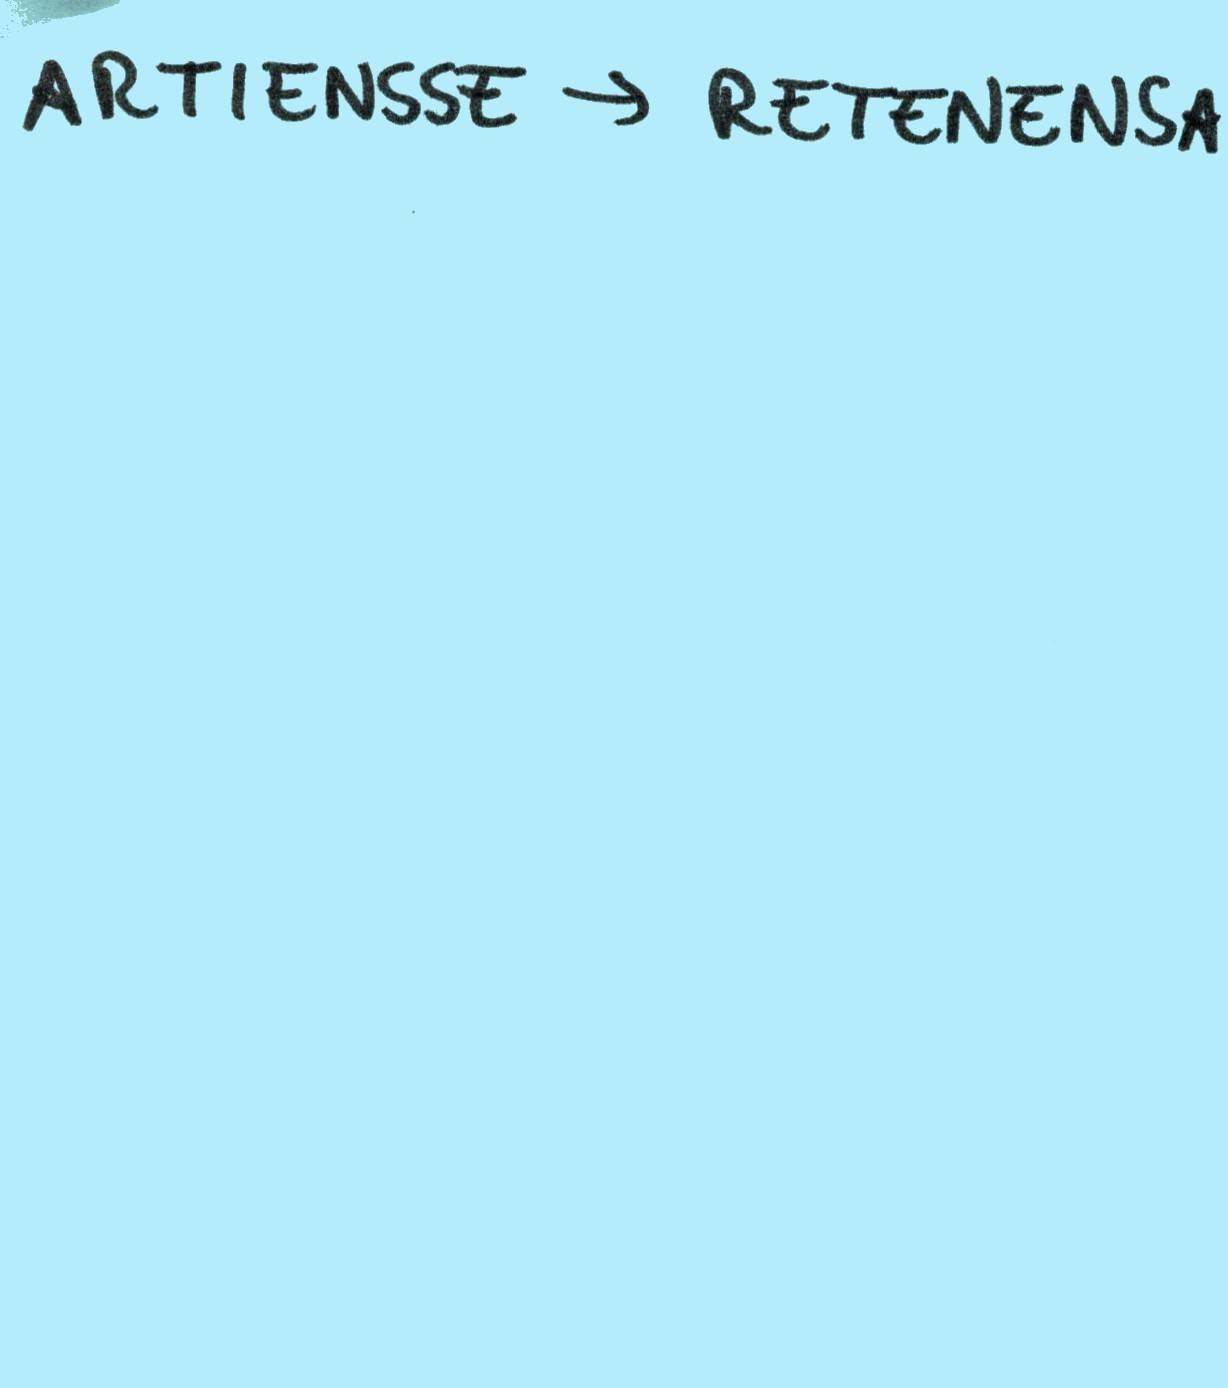 ARTIENSSE → RETENENSA